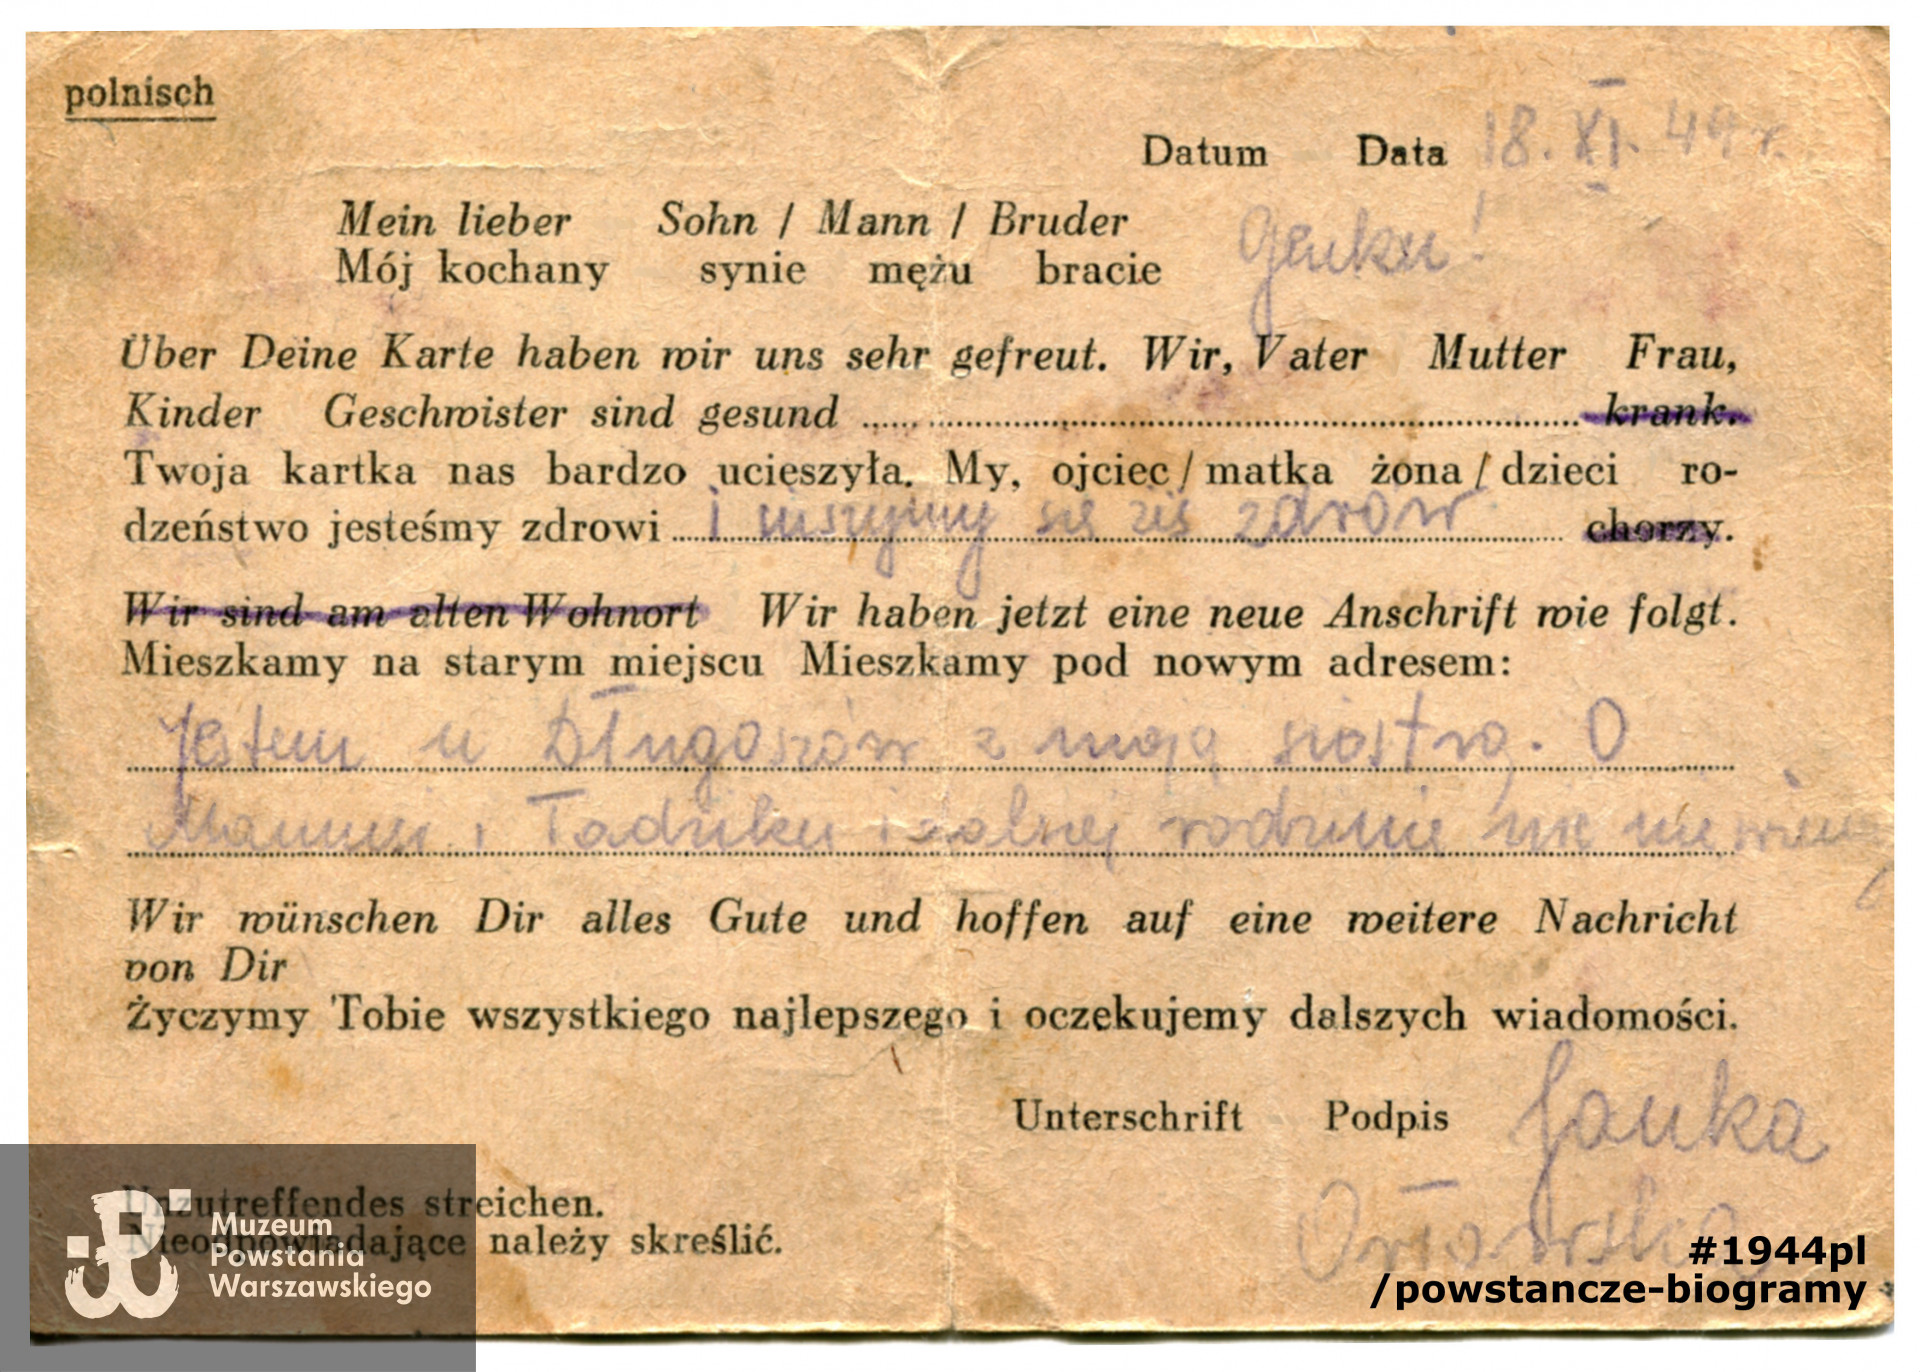 polnisch
Datum Data 18. XI. 44 r.
Mein lieber Sohn / Mann / Bruder
Mój kochany synie mężu bracie Genku!
Über Deine Karte haben wir uns sehr gefreut. Wir, Vater Mutter Frau,
Kinder Geschwister sind gesund krank.
Twoja kartka nas bardzo ucieszyła. My, ojciec / matka żona / dzieci ro-
dzeństwo jesteśmy zdrowi i cieszymy się żeś zdrów chorzy.
Wir sind am alten Wohnort Wir haben jetzt eine neue Anschrift wie folgt.
Mieszkamy na starym miejscu Mieszkamy pod nowym adresem:
Jestem u Długoszów z moją siostrą. O
Mamusi i Tadziku i całej rodzinie nic nie wiem
Wir wünschen Dir alles Gute und hoffen auf eine weitere Nachricht
von Dir
Życzymy Tobie wszystkiego najlepszego i oczekujemy dalszych wiadomości.
Unterschrift Podpis Janka
Orłowska
Unzutreffendes streichen.
Nieodpowiadające należy skreślić.
Muzeum
Powstania
Warszawskiego
#1944pl
/powstancze-biogramy